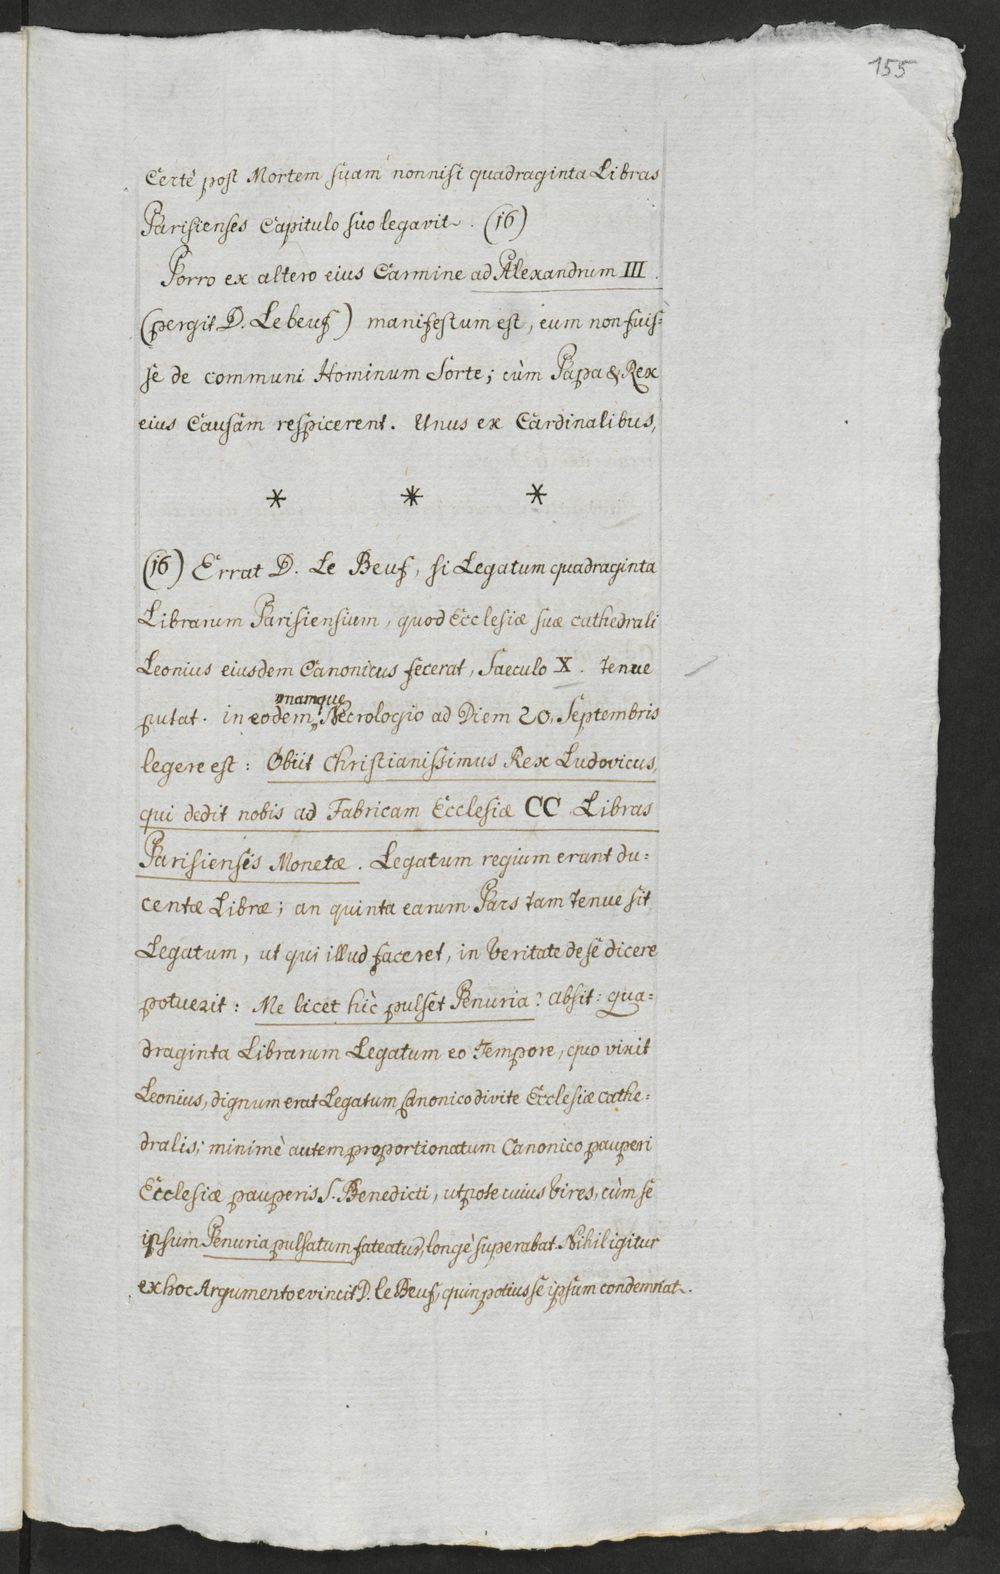 155
Certè post Mortem suam nonnisi quadraginta Libras
Parisienses Capitulo suo legavit. (16)
Porro ex altero eius Carmine ad Alexandrum III.
(pergit D. Lebeuf) manifestum est, eum non fuis-
se de communi Hominum Sorte; cùm Papa & Rex
eius Causam respicerent. Unus ex Cardinalibus,
* * *
(16) Errat D. Le Beuf, si Legatum quadraginta
Librarum Parisiensium, quod Ecclesiæ suæ cathedrali
Leonius eiusdem Canonicus fecerat, Saeculo X. tenue
namque
putat. in eodem Necrologio ad Diem 20. Septembris
legere est: Obiit Christianissimus Rex Ludovicus,
qui dedit nobis ad Fabricam Ecclesiæ CC Libras
Parisienses Monetæ. Legatum regium erant du=
centæ Libræ; an quinta earum Pars tam tenue sit
Legatum, ut qui illud faceret, in Veritate de se dicere
potuerit: Me licet hìc pulset Penuria? absit: qua=
draginta Librarum Legatum eo Tempore, quo vixit
Leonius, dignum erat Legatum Canonico divite Ecclesiæ cathe=
dralis; minimè autem proportionatum Canonico pauperi
Ecclesiæ pauperis S. Benedicti, utpote cuius Vires, cùm se
ipsum Penuria pulsatum fateatur, longè superabat. Nihil igitur
ex hoc Argumento evincit D. le Beuf, quin potius se ipsum condemnat.